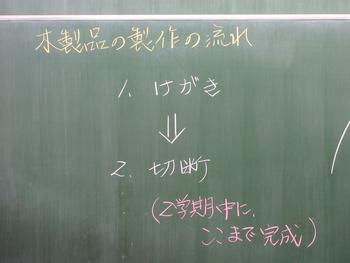 木製品の製作の流れ
1. けがき
⇓
2. 切断
(2学期中に、
ここまで完成)